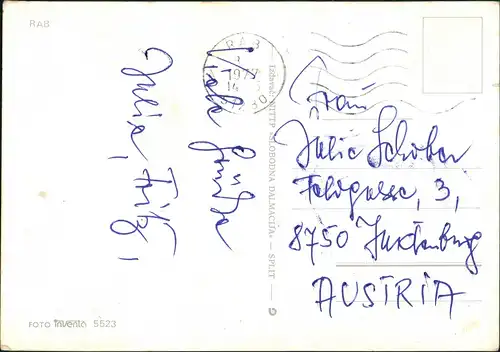 RAB
Viele Grüße
Julia, Fritz,
FOTO 5523
Izdavač: NIŠTP »SLOBODNA DALMACIJA« — SPLIT —
RAB
1977
14
Frau
Julie Schober
Feldgasse, 3,
8750 Judenburg
AUSTRIA